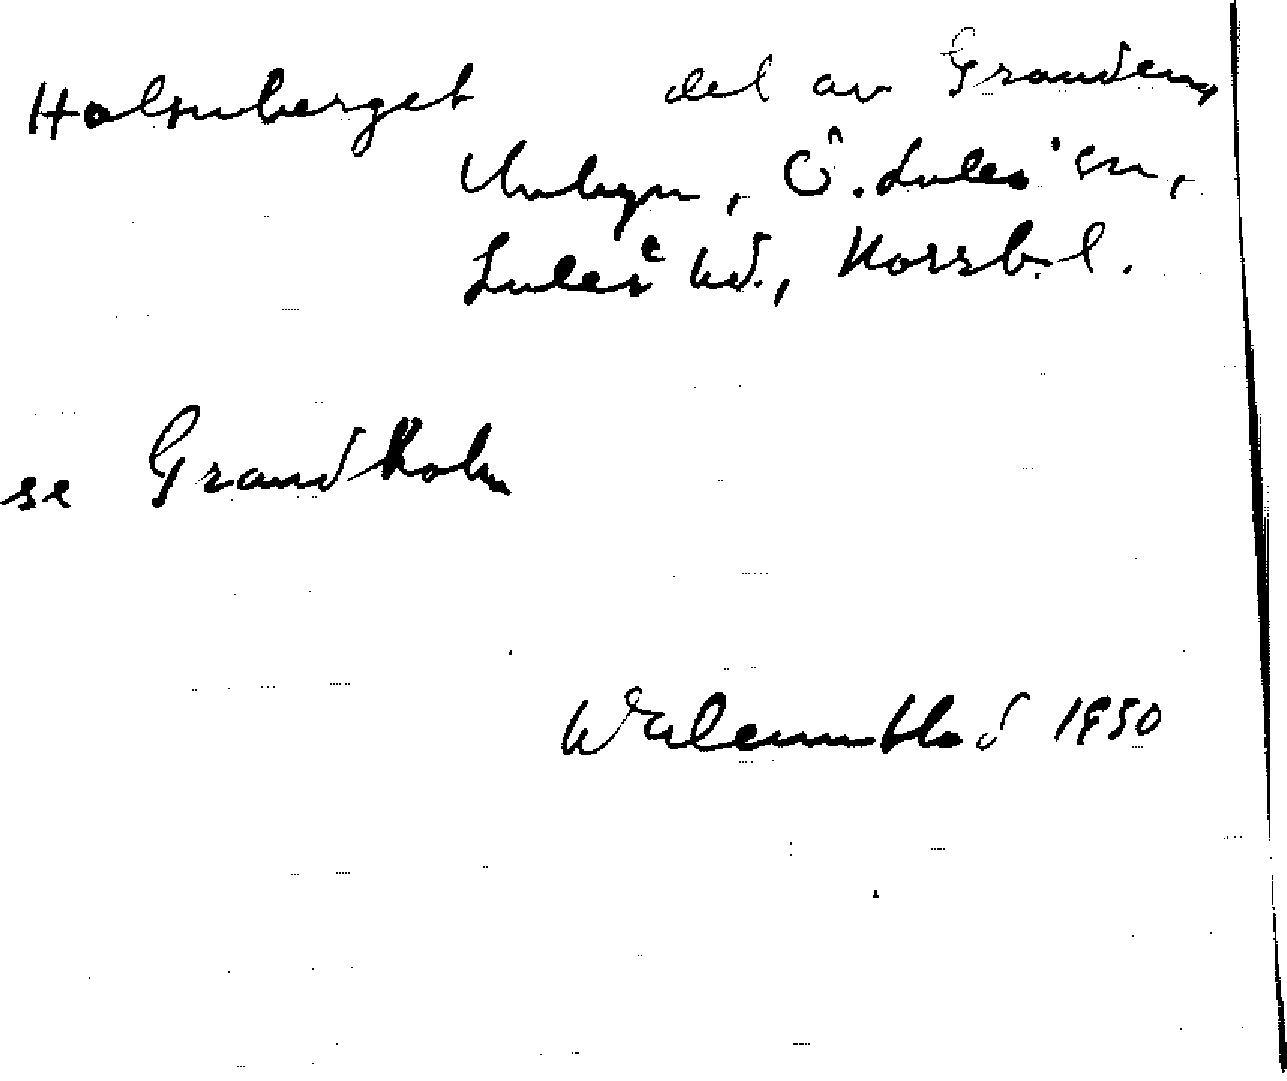 Holmberget del av Granden,
Unbyn, Ö. Luleå sn,
Luleå td., Norrb. l.
se Grandholm
Wahlenblad 1950